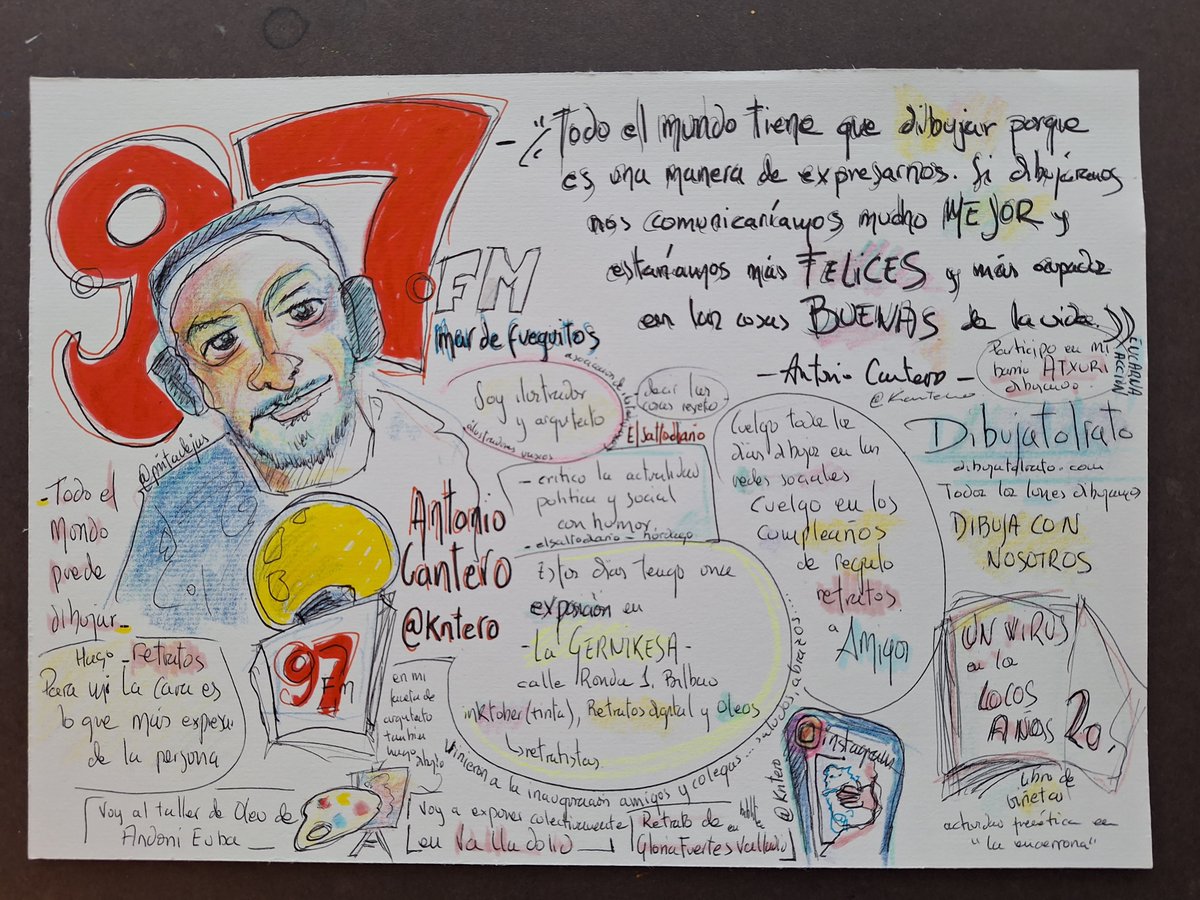 97
FM
Mar de fueguitos
- "Todo el mundo tiene que dibujar porque
es una manera de expresarnos. Si dibujáramos
nos comunicaríamos mucho MEJOR y
estaríamos más FELICES y más
en las cosas BUENAS de la vida.
- Antonio Cantero -
@Kntero
Participo en mi
barrio ATXURI
dibujando
EUCHARNA
ACCIÓN
@pintadejas
Soy ilustrador
y arquitecto
asociación de
ilustradores vascos
decir las
cosas
Elsaltodiario
- critico la actualidad
política y social
con humor
- elsaltodiario - hórdago
Cuelgo todos los
días dibujos en las
redes sociales
Cuelgo en los
cumpleaños
de regalo
retratos
a
Amigos
Dibujatolrato
dibujatolrato.com
Todos los lunes dibujamos
DIBUJA CON
NOSOTROS
- Todo el
Mundo
puede
dibujar -
Antonio
Cantero
@Kntero
Estos días tengo una
exposición en
- La GERNIKESA -
calle Ronda 1, Bilbao
inktober (tinta), Retratos digital y Oleos
retratistas
Vinieron a la inauguración amigos y colegas... saludos, abrazos...
97
FM
Hago - retratos
Para mi la cara es
lo que más expresa
de la persona
en mi
faceta de
arquitecto
también
hago
dibujo
UN VIRUS
en los
LOCOS
AÑOS 20
Libro de
viñetas
actividad frenética en
"la encerrona"
instagram
@Kntero
Voy al taller de Oleo de
Andoni Euba
Voy a exponer colectivamente
en Valladolid
Retrato de
Gloria Fuertes